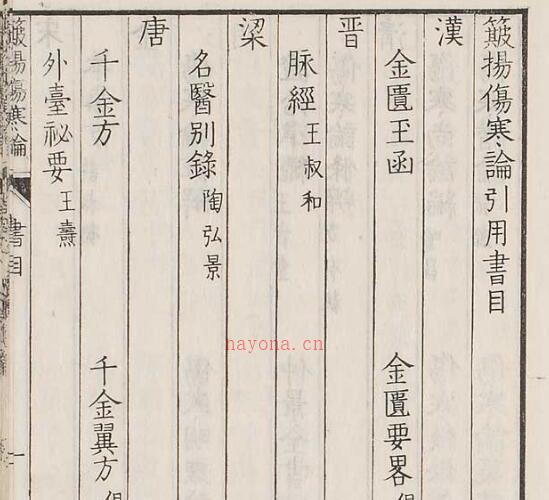 簸揚傷寒論引用書目
漢
金匱玉函 金匱要畧
晋
脉經 王叔和
梁
名醫別錄 陶弘景
唐
千金方 千金翼方
外臺祕要 王燾
簸揚傷寒論 書目 一
nayona.cn